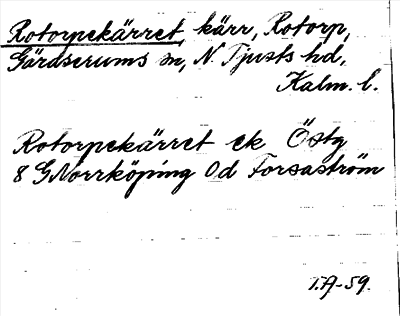 Rotorpekärret, kärr, Rotorp,
Gärdserums sn, N. Tjusts hd,
Kalm. l.
Rotorpekärret ek Östg
8 G Norrköping Od Forsaström
T.A-59.